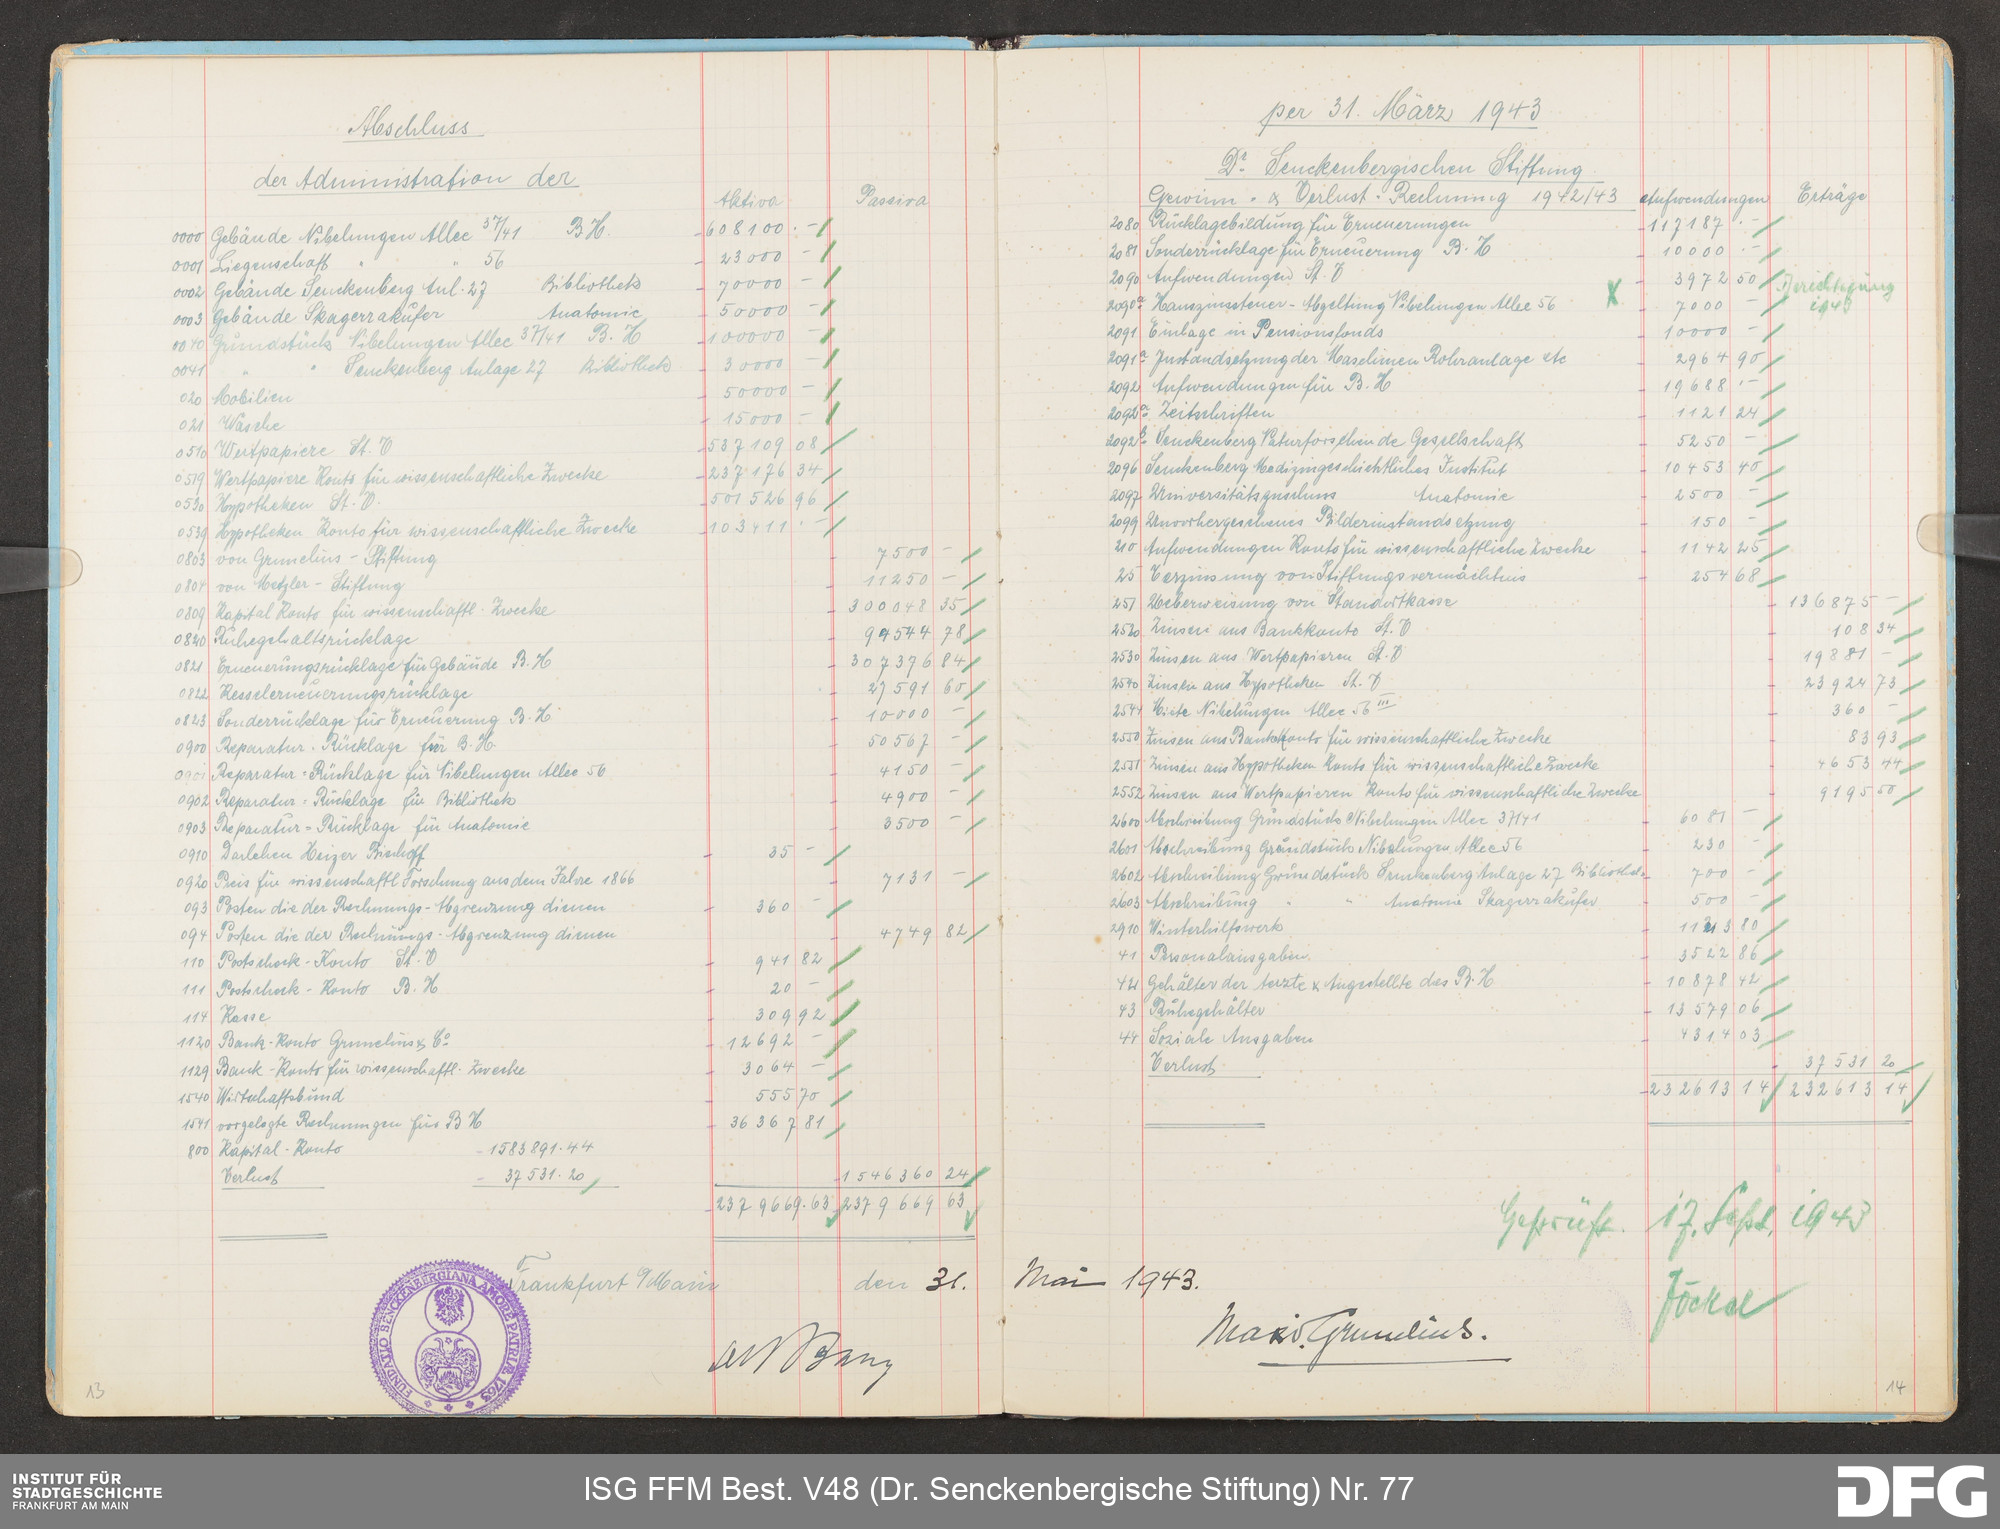 Abschluss
der Administration der
Aktiva Passiva
0000 Gebäude Nibelungen Allee 37/41 B.H. 608100.–
0001 Liegenschaft " " 56 23000 –
0002 Gebäude Senckenberg Anl. 27 Bibliothek 70000 –
0003 Gebäude Skagerrakufer Anatomie 50000 –
0040 Grundstück Nibelungen Allee 37/41 B.H 100000 –
0041 " " Senckenberg Anlage 27 Bibliothek 30000 –
020 Mobilien 50000 –
021 Wäsche 15000 –
0510 Wertpapiere St. V 537109 08
0519 Wertpapiere Konto für wissenschaftliche Zwecke 237176 34
0530 Hypotheken St. V. 501526 96
0539 Hypotheken Konto für wissenschaftliche Zwecke 103411.–
0803 von Grunelius-Stiftung 7500 –
0804 von Metzler-Stiftung 11250 –
0809 Kapital Konto für wissenschaftl. Zwecke 300048 35
0820 Ruhegehaltsrücklage 94544 78
0821 Erneuerungsrücklage für Gebäude B.H 307376 84
0822 Kesselerneuerungsrücklage 27591 60
0823 Sonderrücklage für Erneuerung B.H 10000 –
0900 Reparatur-Rücklage für B.H. 50567 –
0901 Reparatur-Rücklage für Nibelungen Allee 56 4150 –
0902 Reparatur-Rücklage für Bibliothek 4900 –
0903 Reparatur-Rücklage für Anatomie 3500 –
0910 Darlehen Heizer Bischoff 35 –
0920 Preis für wissenschaftl Forschung aus dem Jahre 1866 7131 –
093 Posten die der Rechnungs-Abgrenzung dienen 360 –
094 Posten die der Rechnungs-Abgrenzung dienen 4749 82
110 Postscheck-Konto St. V 941 82
111 Postscheck-Konto B.H 20 –
114 Kasse 309 92
1120 Bank-Konto Grunelius & Co 12692 –
1129 Bank-Konto für wissenschaftl. Zwecke 3064 –
1540 Wirtschaftsbund 555 70
1541 vorgelegte Rechnungen für B H 36367 81
800 Kapital-Konto 1583891.44
Verlust 37531.20 1546360 24
2379669.63 2379669 63
Frankfurt a/Main den 31.
FUNDATIO SENCKENBERGIANA AMORE PATRIAE 1763
13
per 31. März 1943
Dr. Senckenbergischen Stiftung
Gewinn- & Verlust-Rechnung 1942/43 Aufwendungen Erträge
2080 Rücklagebildung für Erneuerungen 117187.–
2081 Sonderrücklage für Erneuerung B.H 10000.–
2090 Aufwendungen St. V 3972 50 Berichtigung
2090a Hauszinssteuer-Abgeltung Nibelungen Allee 56 x 7000 – 1943
2091 Einlage in Pensionsfonds 10000 –
2091a Instandsetzung der Maschinen Rohranlage etc 2964 90
2092 Aufwendungen für B.H 19688.–
2092a Zeitschriften 1121 24
2092b Senckenberg Naturforschende Gesellschaft 5250 –
2096 Senckenberg Medizingeschichtliches Institut 10453 40
2097 Universitätszuschuss Anatomie 2500 –
2099 Unvorhergesehenes Bilderinstandsetzung 150 –
210 Aufwendungen Konto für wissenschaftliche Zwecke 1142 25
25 Verzinsung von Stiftungsvermächtnis 254 68
251 Ueberweisung von Standortkasse 136875 –
2520 Zinsen aus Bankkonto St. V 108 34
2530 Zinsen aus Wertpapieren St. V 19881 –
2540 Zinsen aus Hypotheken St. V 23924 73
2544 Miete Nibelungen Allee 56 III 360 –
2550 Zinsen aus Bankkonto für wissenschaftliche Zwecke 83 93
2551 Zinsen aus Hypotheken Konto für wissenschaftliche Zwecke 4653 44
2552 Zinsen aus Wertpapieren Konto für wissenschaftliche Zwecke 9195 50
2600 Abschreibung Grundstück Nibelungen Allee 37/41 6081 –
2601 Abschreibung Grundstück Nibelungen Allee 56 230 –
2602 Abschreibung Grundstück Senckenberg Anlage 27 Bibliothek 700 –
2603 Abschreibung " " Anatomie Skagerrakufer 500 –
2910 Winterhilfswerk 1121 80
41 Personalausgaben 3522 86
42 Gehälter der Aerzte & Angestellte des B.H 10878 42
43 Ruhegehälter 13579 06
44 Soziale Ausgaben 4314 03
Verlust 37531 20
232613 14 232613 14
Geprüft. 17. Sept. 1943
Jöckel
Mai 1943.
Max v. Grunelius.
14
INSTITUT FÜR
STADTGESCHICHTE
FRANKFURT AM MAIN
ISG FFM Best. V48 (Dr. Senckenbergische Stiftung) Nr. 77
DFG